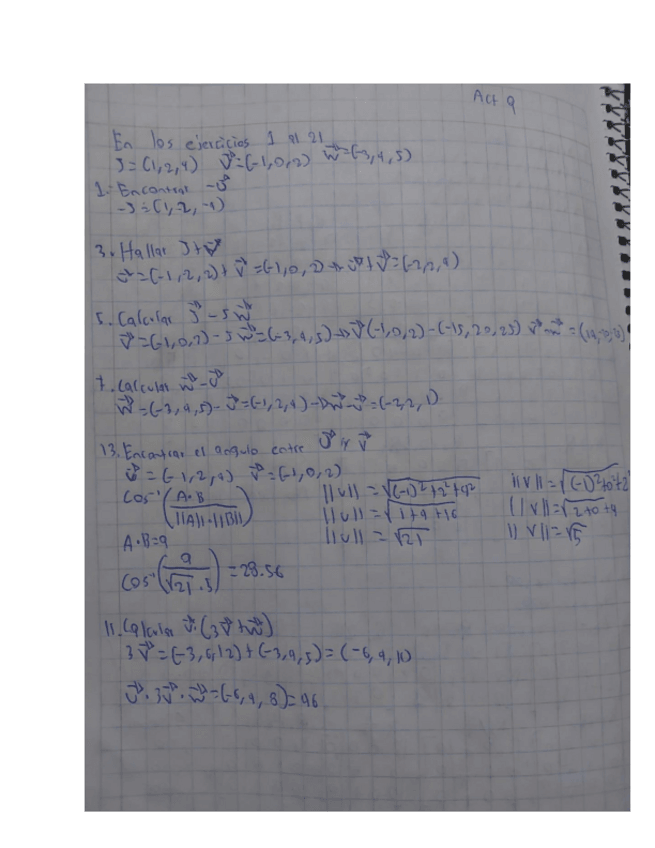 Act 9
En los ejercicios 1 al 21
U=(1,2,4) V=(-1,0,2) W=(-3,4,5)
1. Encontrar -U
-U=(1,-2,-4)
3. Hallar U+V
U=(-1,2,2)+V=(-1,0,2)→U+V=(-2,2,4)
5. Calcular V-5W
V=(-1,0,2)-5W=(-3,4,5)→V(-1,0,2)-(-15,20,25) V-W=
7. Calcular W-U
W=(-3,4,5)-U=(-1,2,4)→W-U=(-2,2,1)
13. Encontrar el angulo entre U y V
U=(-1,2,4) V=(-1,0,2)
Cos⁻¹(A·B/||A||·||B||)
||u||=√(-1)²+2²+4²
||u||=√1+4+16
||u||=√21
||v||=√(-1)²+0²+2
||v||=√2+0+4
||v||=√5
A·B=9
Cos⁻¹(9/√21·5)=28.56
11. Calcular U·(3V+W)
3V=(-3,6,12)+(-3,4,5)=(-6,4,10)
U·3V·W=(-6,4,8)=46